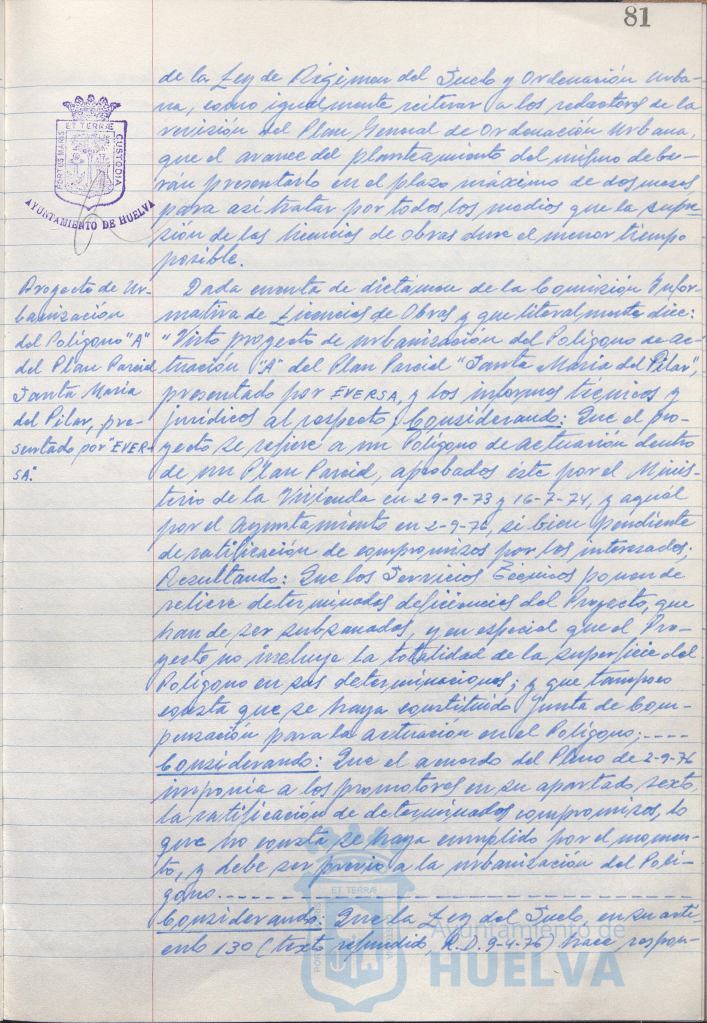 81
de la Ley de Régimen del Suelo y Ordenación Urba-
na, como igualmente reiterar a los redactores de la
revisión del Plan General de Ordenación Urbana,
que el avance del planteamiento del mismo debe-
rán presentarlo en el plazo máximo de dos meses
para así tratar por todos los medios que la supre-
sión de las licencias de obras dure el menor tiempo
posible.
PORTUS MARIS ET TERRAE CUSTODIA
AYUNTAMIENTO DE HUELVA
Proyecto de Ur-
banización
del Polígono "A"
del Plan Parcial
Santa María
del Pilar, pre-
sentado por "EVER-
SA".
Dada cuenta de dictamen de la Comisión Infor-
mativa de Licencias de Obras y que literalmente dice:
"Visto proyecto de urbanización del Polígono de ac-
tuación "A" del Plan Parcial "Santa María del Pilar",
presentado por EVERSA, y los informes técnicos y
jurídicos al respecto; Considerando: Que el pro-
yecto se refiere a un Polígono de actuación dentro
de un Plan Parcial, aprobados éste por el Minis-
terio de la Vivienda en 29-9-73 y 16-7-74, y aquél
por el Ayuntamiento en 2-9-76, si bien pendiente
de ratificación de compromisos por los interesados;
Resultando: Que los Servicios Técnicos ponen de
relieve determinadas deficiencias del Proyecto, que
han de ser subsanadas, y en especial que el Pro-
yecto no incluye la totalidad de la superficie del
Polígono en sus determinaciones; y que tampoco
consta que se haya constituido Junta de Com-
pensación para la actuación en el Polígono;----
Considerando: Que el acuerdo del Pleno de 2-9-76
imponía a los promotores en su apartado sexto,
la ratificación de determinados compromisos, lo
que no consta se haya cumplido por el momen-
to, y debe ser previo a la urbanización del Polí-
gono.--------------------
Considerando: Que la Ley del Suelo, en su artí-
culo 130 (texto refundido, R.D. 9-4-76) hace respon-
Ayuntamiento de
HUELVA